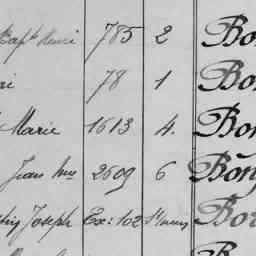 Bapt Henri 785 2 Bon
ri 78 1 Bon
Marie 1613 4. Bon
Jean 2609 6 Bon
Joseph Ex: 102 Bon